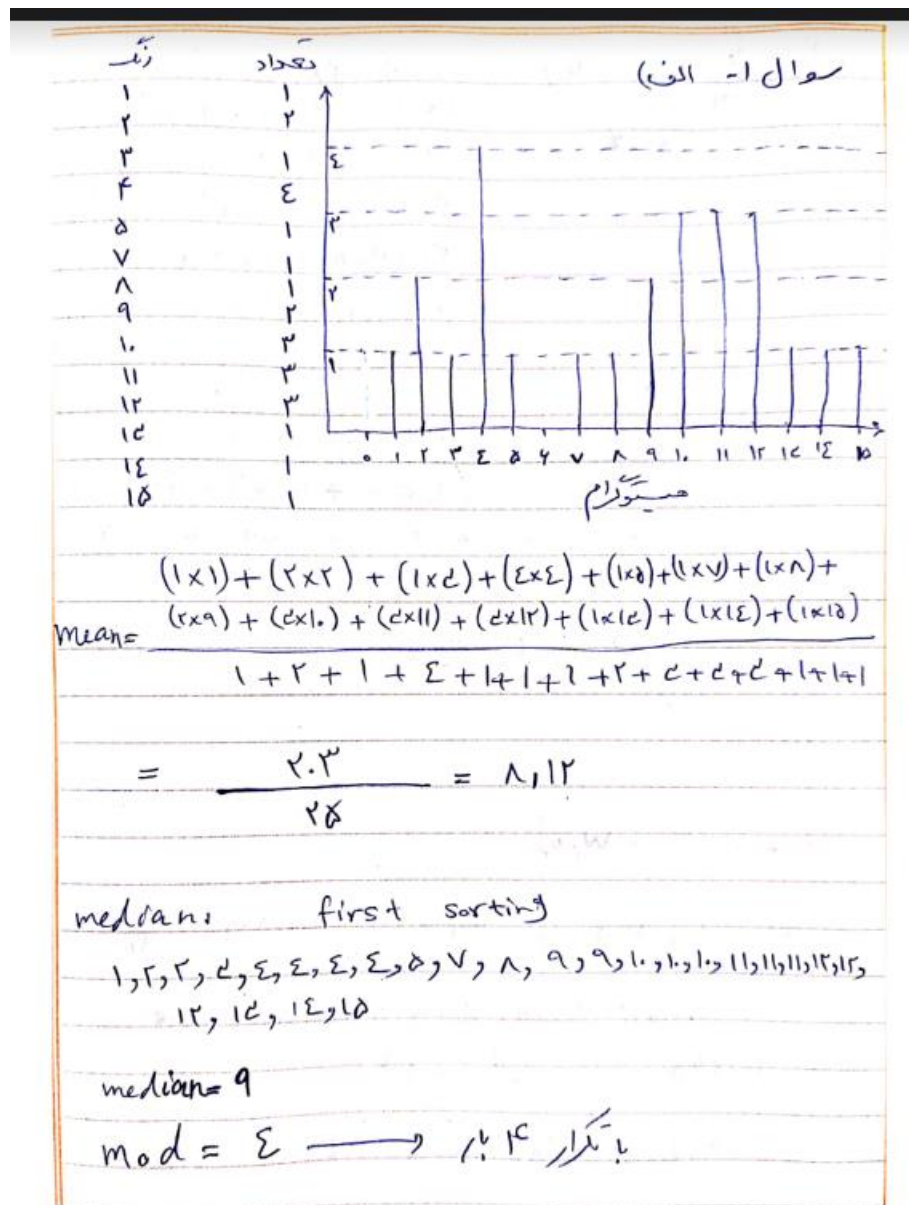 سوال ۱- الف)
رنگ تعداد
۱ ۱
۲ ۲
۳ ۱
۴ ۴
۵ ۱
۷ ۱
۸ ۱
۹ ۲
۱۰ ۳
۱۱ ۳
۱۲ ۳
۱۳ ۱
۱۴ ۱
۱۵ ۱
۴
۳
۲
۱
۰ ۱ ۲ ۳ ۴ ۵ ۶ ۷ ۸ ۹ ۱۰ ۱۱ ۱۲ ۱۳ ۱۴ ۱۵
هیستوگرام
(۱×۱) + (۲×۲) + (۱×۳) + (۴×۴) + (۱×۵) + (۱×۷) + (۱×۸) +
mean= (۲×۹) + (۳×۱۰) + (۳×۱۱) + (۳×۱۲) + (۱×۱۳) + (۱×۱۴) + (۱×۱۵)
۱ + ۲ + ۱ + ۴ + ۱ + ۱ + ۱ + ۲ + ۳ + ۳ + ۳ + ۱ + ۱ + ۱
= ۲۰۳ / ۲۵ = ۸,۱۲
median: first sorting
۱, ۲, ۲, ۳, ۴, ۴, ۴, ۴, ۵, ۷, ۸, ۹, ۹, ۱۰, ۱۰, ۱۰, ۱۱, ۱۱, ۱۱, ۱۲, ۱۲,
۱۲, ۱۳, ۱۴, ۱۵
median= ۹
mod = ۴ → با تکرار ۴ بار